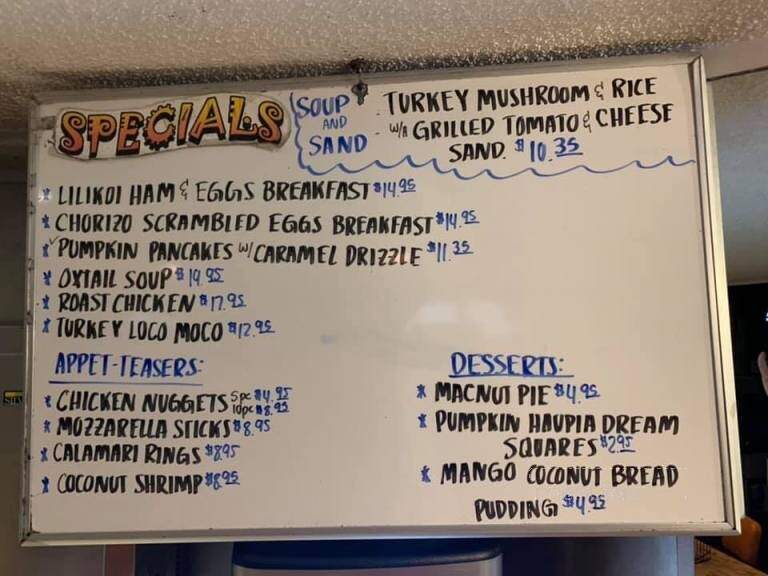 SPECIALS
SOUP
AND
SAND
TURKEY MUSHROOM & RICE
w/a GRILLED TOMATO & CHEESE
SAND. $10.35
* LILIKOI HAM & EGGS BREAKFAST $14.95
* CHORIZO SCRAMBLED EGGS BREAKFAST $14.95
* PUMPKIN PANCAKES w/ CARAMEL DRIZZLE $11.35
* OXTAIL SOUP $19.95
* ROAST CHICKEN $17.95
* TURKEY LOCO MOCO $12.95
APPET-TEASERS:
* CHICKEN NUGGETS 5pc $4.95
10pc $8.95
* MOZZARELLA STICKS $8.95
* CALAMARI RINGS $8.95
* COCONUT SHRIMP $8.95
DESSERTS:
* MACNUT PIE $4.95
* PUMPKIN HAUPIA DREAM
SQUARES $2.95
* MANGO COCONUT BREAD
PUDDING $4.95